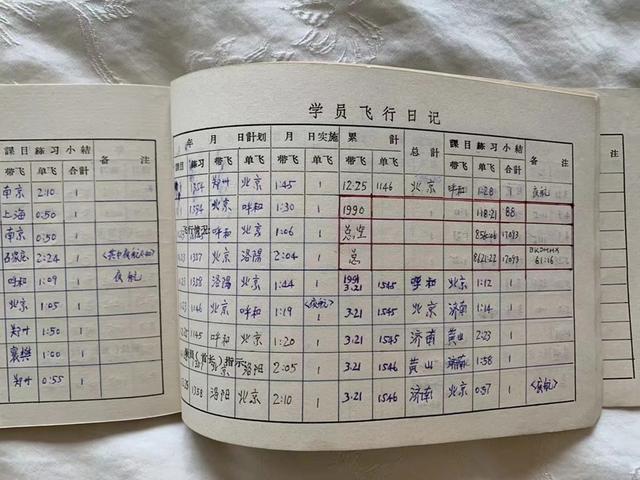 課目練习小結 备 注
带飞 单飞 合計
南京 2:10 1
上海 0:50 1
南京 0:50 1
2:24 1
呼和 1:09 1 夜航
北京 1:05 1
郑州 1:50 1
襄樊 1:00 1
郑州 0:55 1
学员飞行日记
年 月 日計划 月 日实施 累 計 总計 課目練习小結 备 注
练习 带飞 单飞 带飞 单飞 带飞 单飞 带飞 单飞 合計
1354 郑州 北京 1:45 1 12:25 1146 北京 呼和 1:28 1 夜航
1354 北京 呼和 1:30 1 1990 118:21 88
飞行情况 呼和 北京 1:06 1 总空 17093
1327 北京 洛陽 2:04 1 总 8621:22 17093 61:16
1328 洛陽 北京 1:44 1 1991 3.21 1545 呼和 北京 1:12 1
1146 北京 呼和 1:19 <夜航> 1 3.21 1545 北京 济南 1:14 1
1145 呼和 北京 1:20 1 3.21 1545 济南 黄山 2:23 1
(首长)指示 洛阳 2:05 1 3.21 1546 黄山 济南 1:58 1
1358 洛阳 北京 2:10 1 3.21 1546 济南 北京 0:57 1 <夜航>